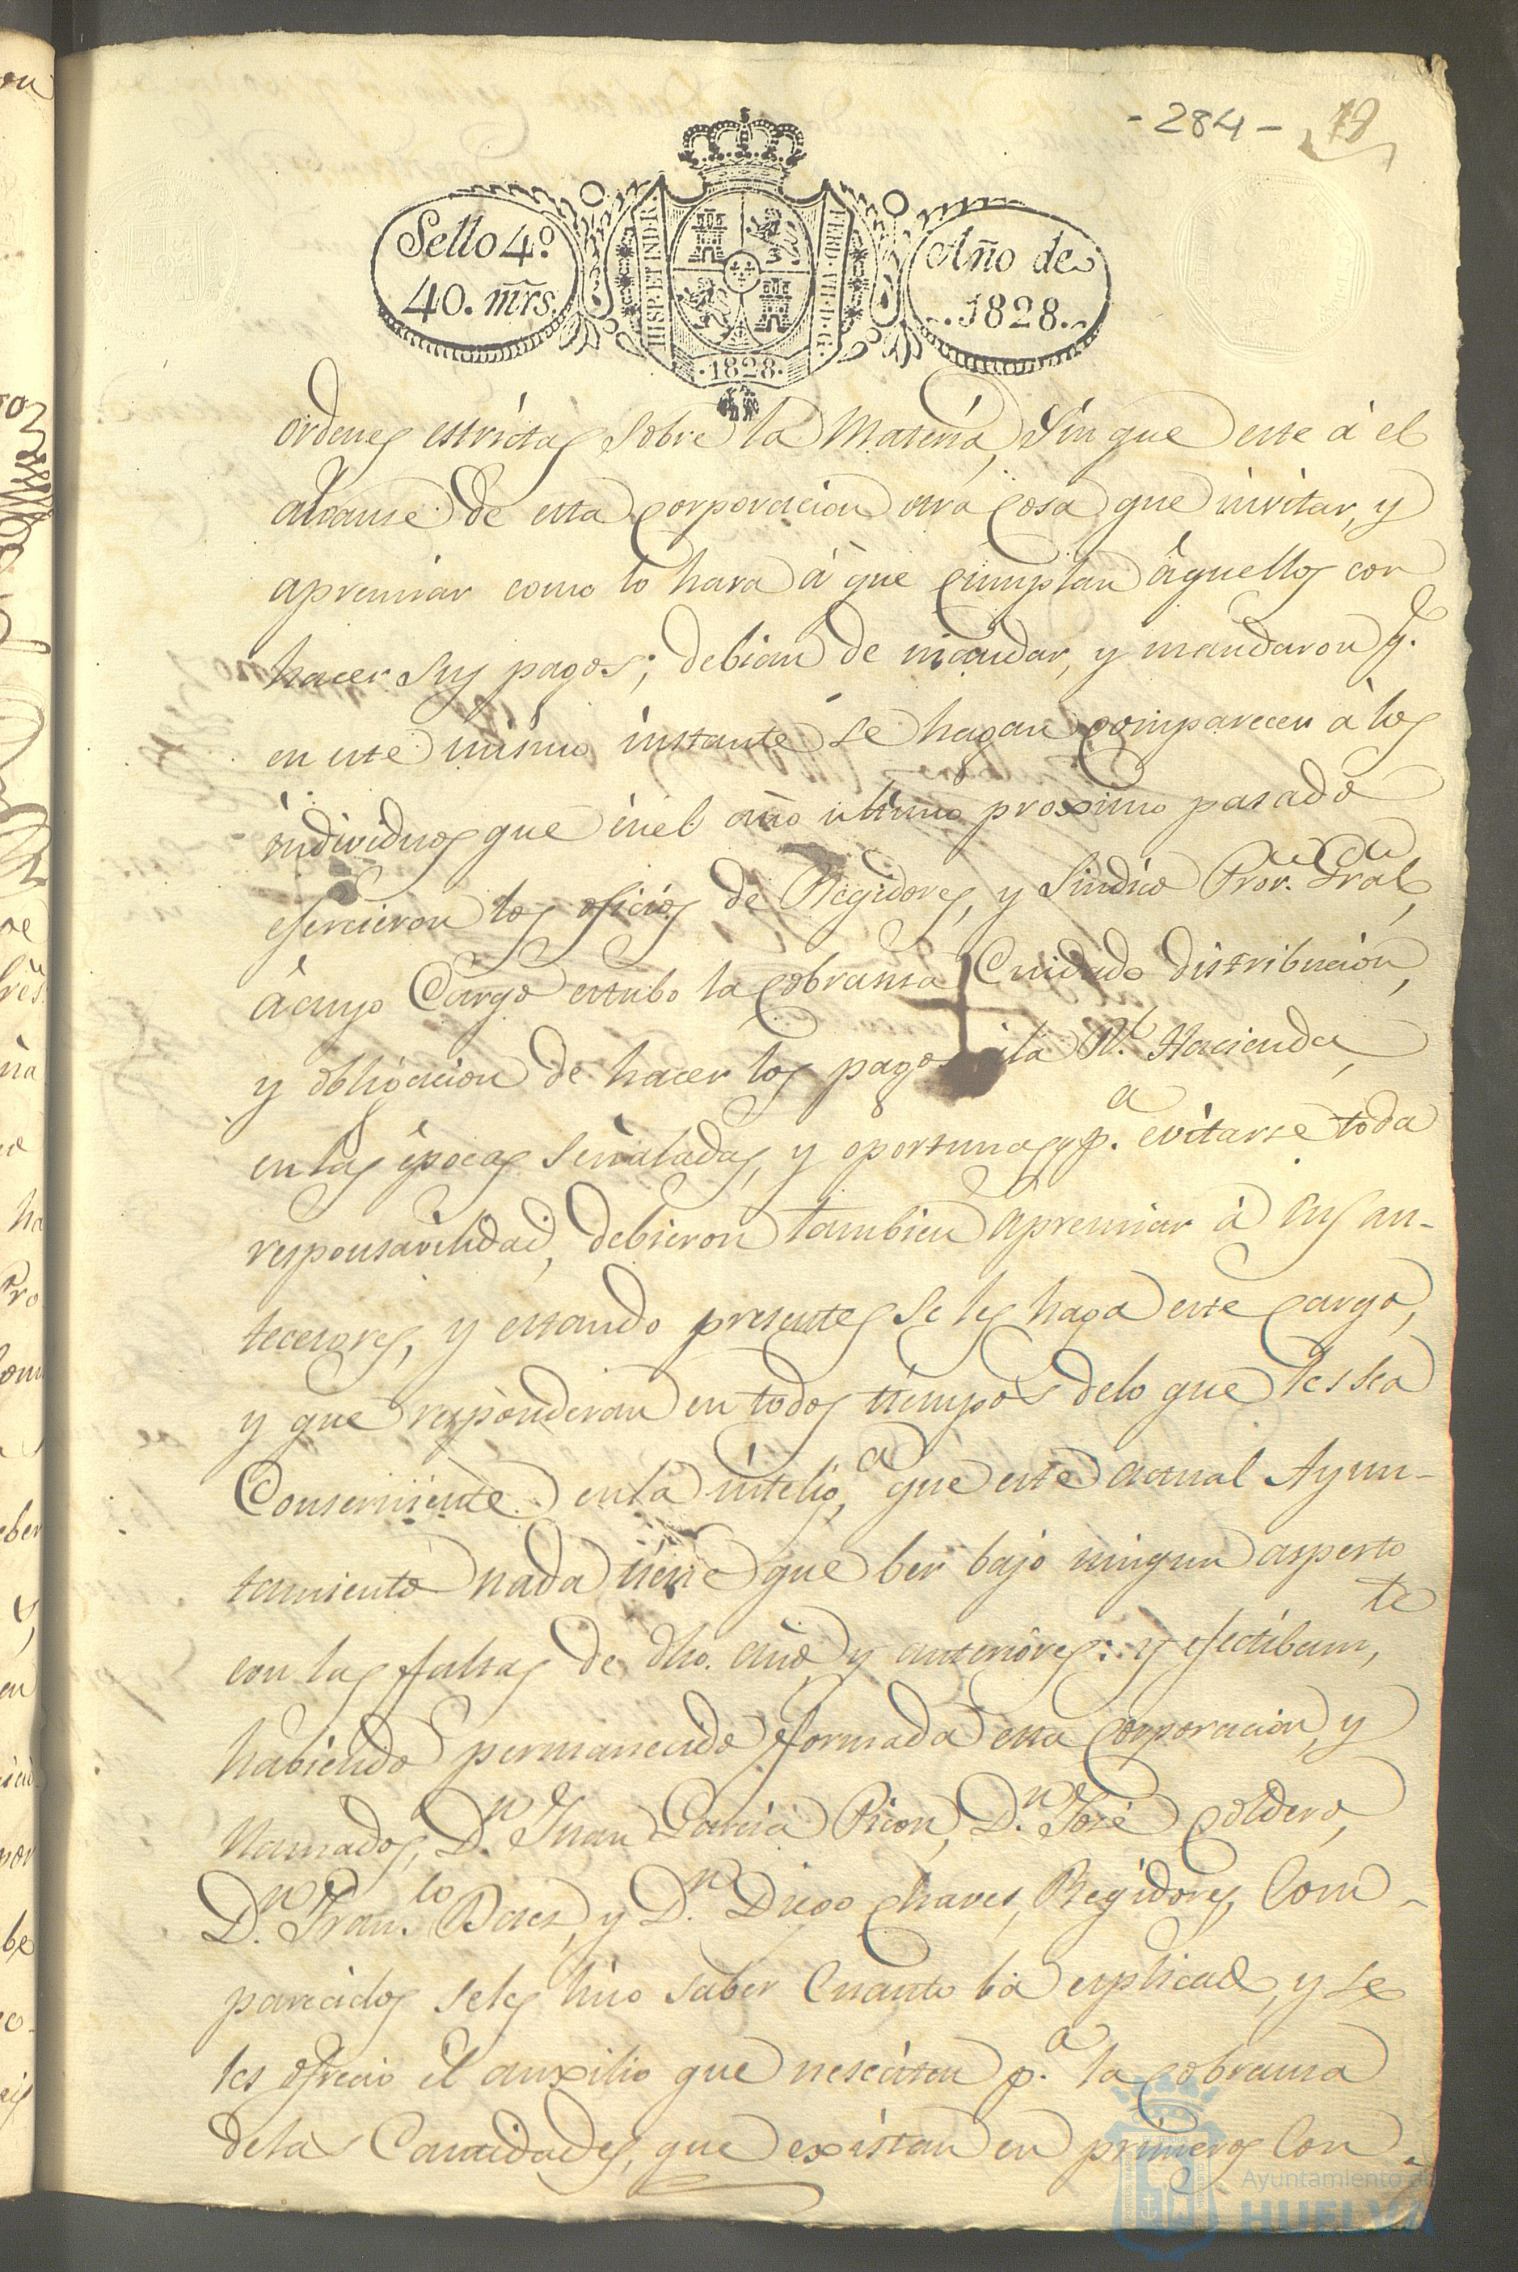 - 284 - 19
Sello 4º
40. mrs.
HISP. ET IND. R.
FERD. VII. D. G.
.1828.
Año de
1828.
ordenes estrictas sobre la Materia, sin que este á el
alcanse de esta corporacion otra cosa que invitar, y
apremiar como lo hara á que cumplan aquellos con
hacer sus pagos; debian de mandar, y mandaron q.
en este mismo instante se hagan comparecer á los
individuos que en el año ultimo proximo pasado
ejercieron los oficios de Regidores, y Sindico Pror. Gral,
á cuyo Cargo estubo la cobransa Cuidado distribucion,
y obligacion de hacer los pagos á la Rl. Hacienda,
en las epocas señaladas, y oportunas, y pa. evitarse toda
responsavilidad, debieron tambien apremiar á sus an-
tecesores, y estando presentes se les haga este cargo,
y que responderan en todos tiempos de lo que les sea
Conserniente en la inteliga. que este actual Ayun-
tamiento nada tiene que ber bajo ningun aspecto
con las faltas de dho. año, y anteriores: y efectibamte,
habiendo permanecido formada esta Corporacion, y
llamados, Dn. Juan Garcia Picon, Dn. José Coldero,
Dn. Franlo. Baes, y Dn. Diego Chaves, Regidores, Com-
parecidos seles hiso saber Cuanto ba esplicado, y se
les ofrecio el auxilio que nesesiten pa. la cobransa
delas Cantidades, que existan en primeros Con-
Ayuntamiento de
HUELVA